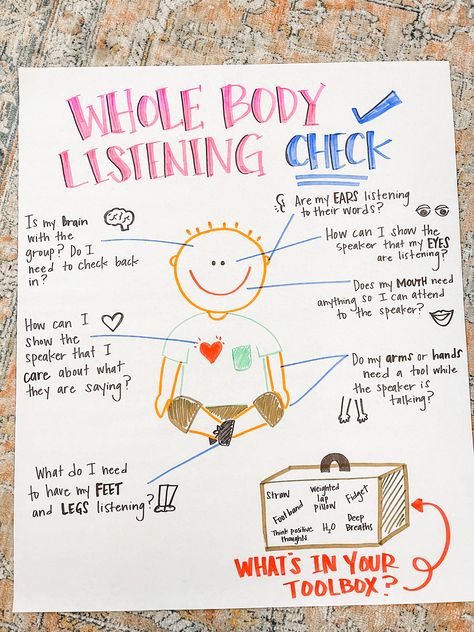 WHOLE BODY
LISTENING CHECK
Is my BRAIN
with the
group? Do I
need to check back
in?
Are my EARS listening
to their words?
How can I show the
speaker that my EYES
are listening?
Does my MOUTH need
anything so I can attend
to the speaker?
How can I
show the
speaker that I
CARE about what
they are saying?
Do my arms or hands
need a tool while
the speaker is
talking?
What do I need
to have my FEET
and LEGS listening?
Straw
Weighted
lap
pillow
Fidget
Foot band
Think positive
thoughts
H2O
Deep
Breaths
WHAT'S IN YOUR
TOOLBOX?